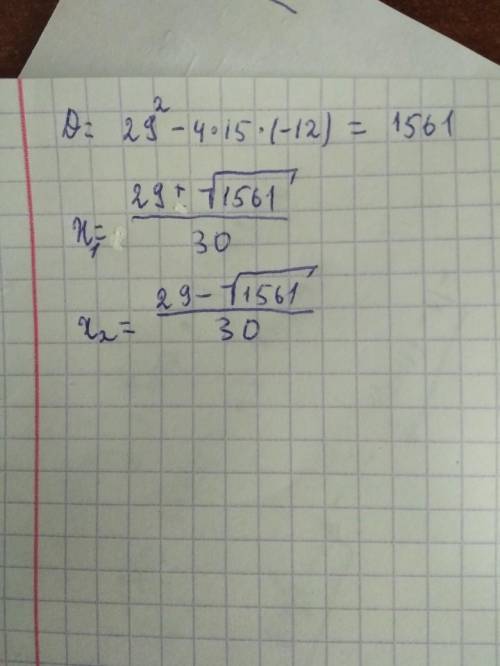 D = 29² - 4·15·(-12) = 1561
x₁ = (29 + √1561) / 30
x₂ = (29 - √1561) / 30